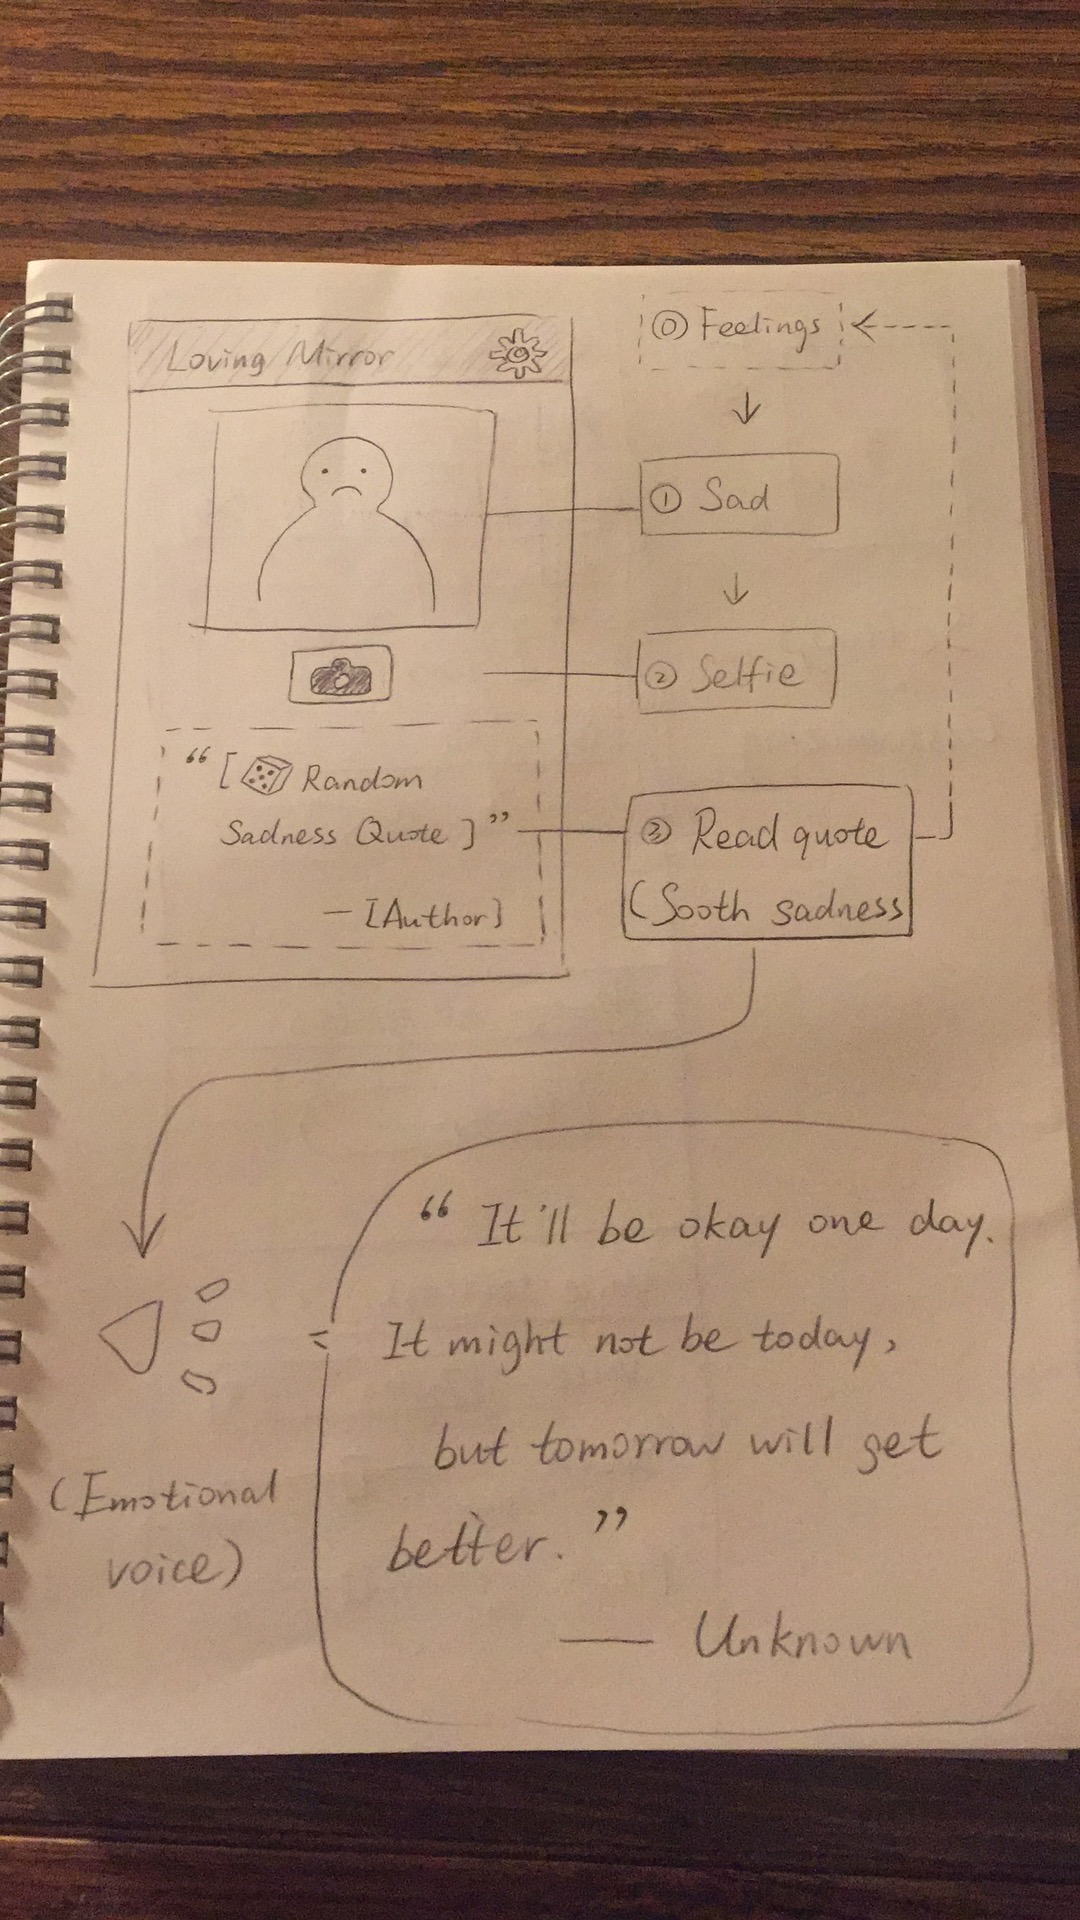 Loving Mirror
“[Random
Sadness Quote]”
— [Author]
⓪ Feelings
① Sad
② Selfie
③ Read quote
(Sooth sadness
(Emotional
voice)
“ It'll be okay one day.
It might not be today,
but tomorrow will get
better. ”
— Unknown